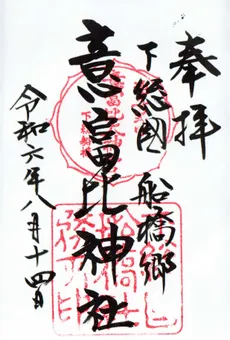 奉拝
下総國 船橋郷
意富比神社
令和六年八月十四日